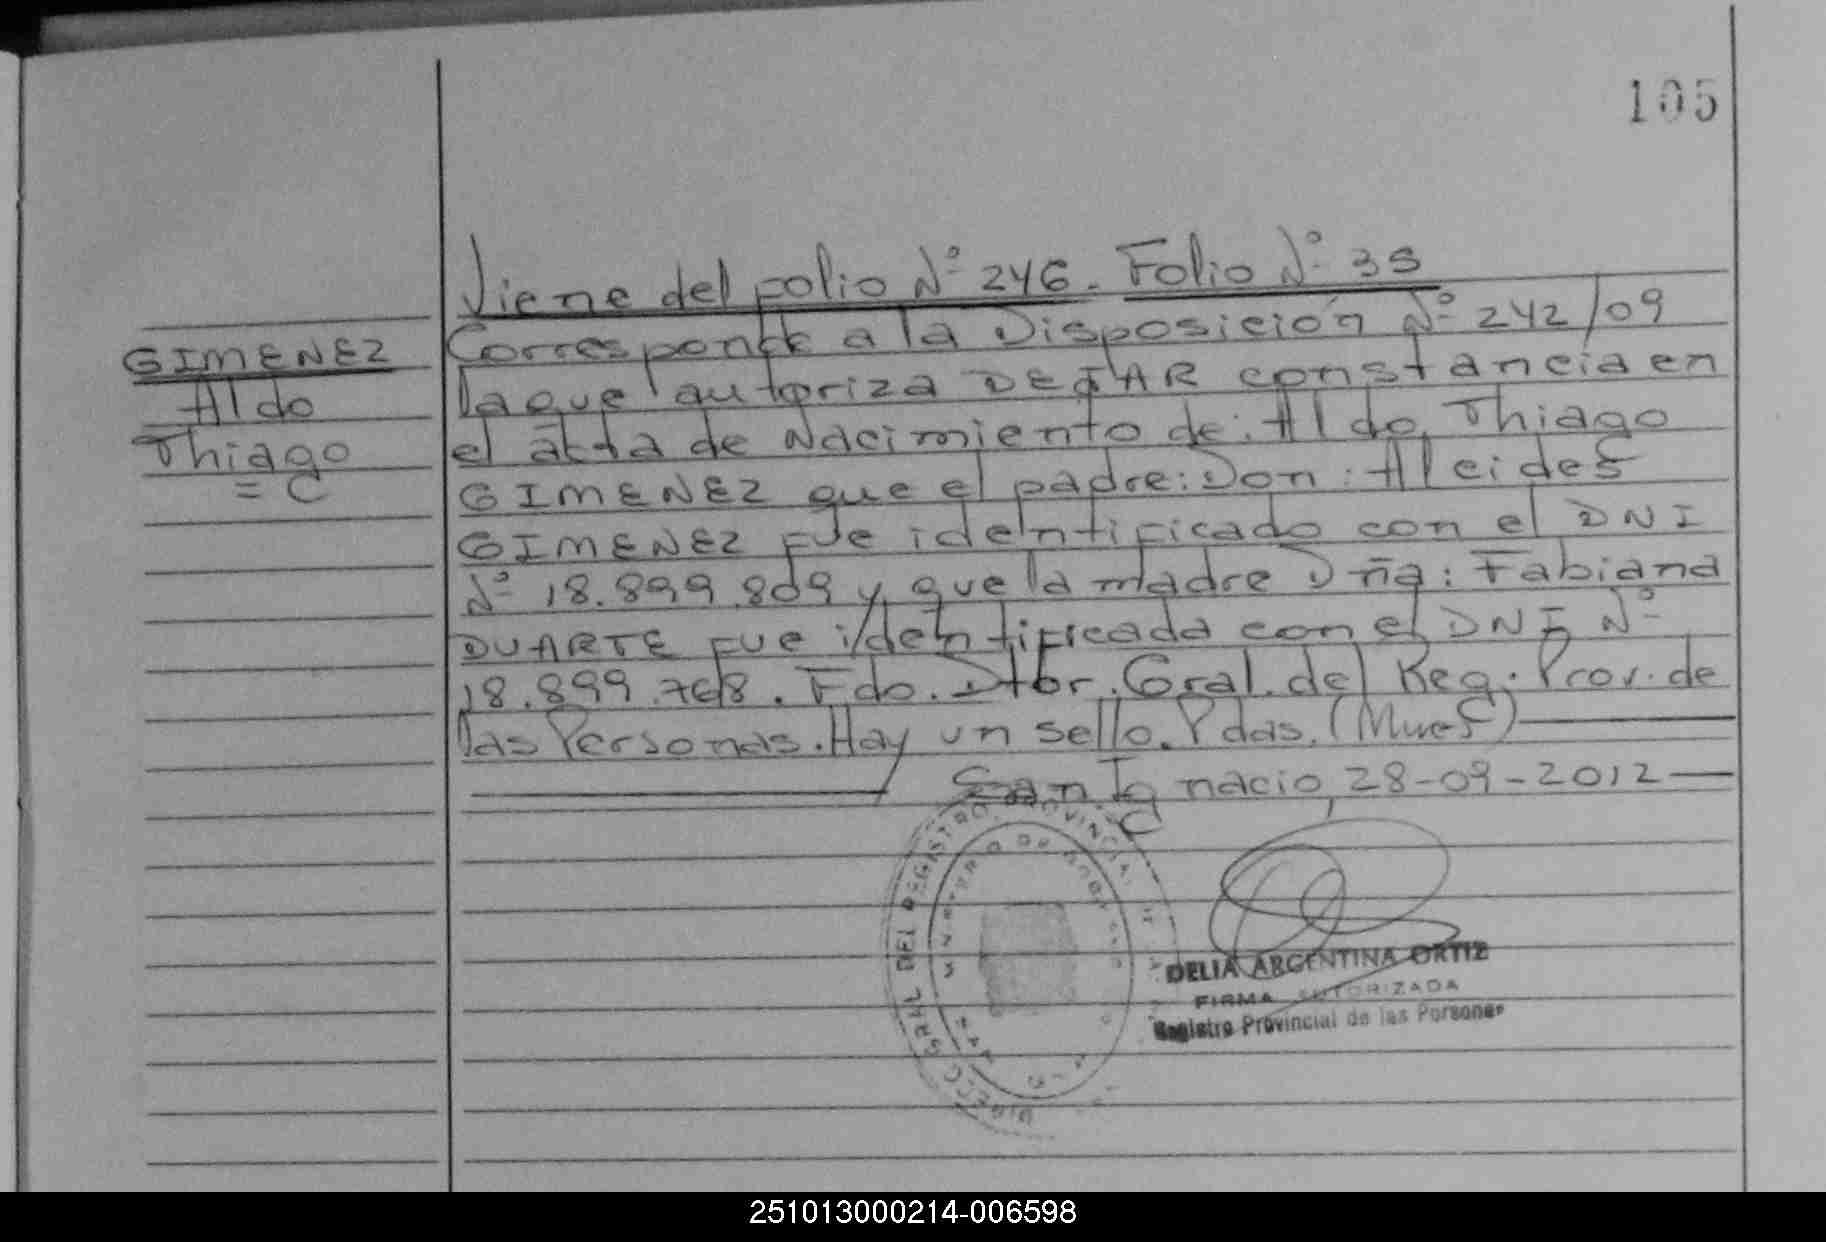 105
Viene del folio Nº 246. Folio Nº 35
Corresponde a la Disposición Nº 242/09
GIMENEZ
Aldo
Thiago
= C
la que autoriza DEJAR constancia en
el acta de Nacimiento de: Aldo Thiago
GIMENEZ que el padre: Don: Alcides
GIMENEZ fue identificado con el DNI
Nº 18.899.809 y que la madre Dña: Fabiana
DUARTE fue identificada con el DNI Nº
18.899.768. Fdo. Dtor. Gral. del Reg. Prov. de
las Personas. Hay un sello. Pdas. (Mnes)
San Ignacio, 28-09-2012
C
DIRECC. GRAL DEL REGISTRO PROVINCIAL
MINISTERIO DE GOBIERNO
DELIA ARGENTINA ORTIZ
FIRMA AUTORIZADA
Registro Provincial de las Personas
251013000214-006598